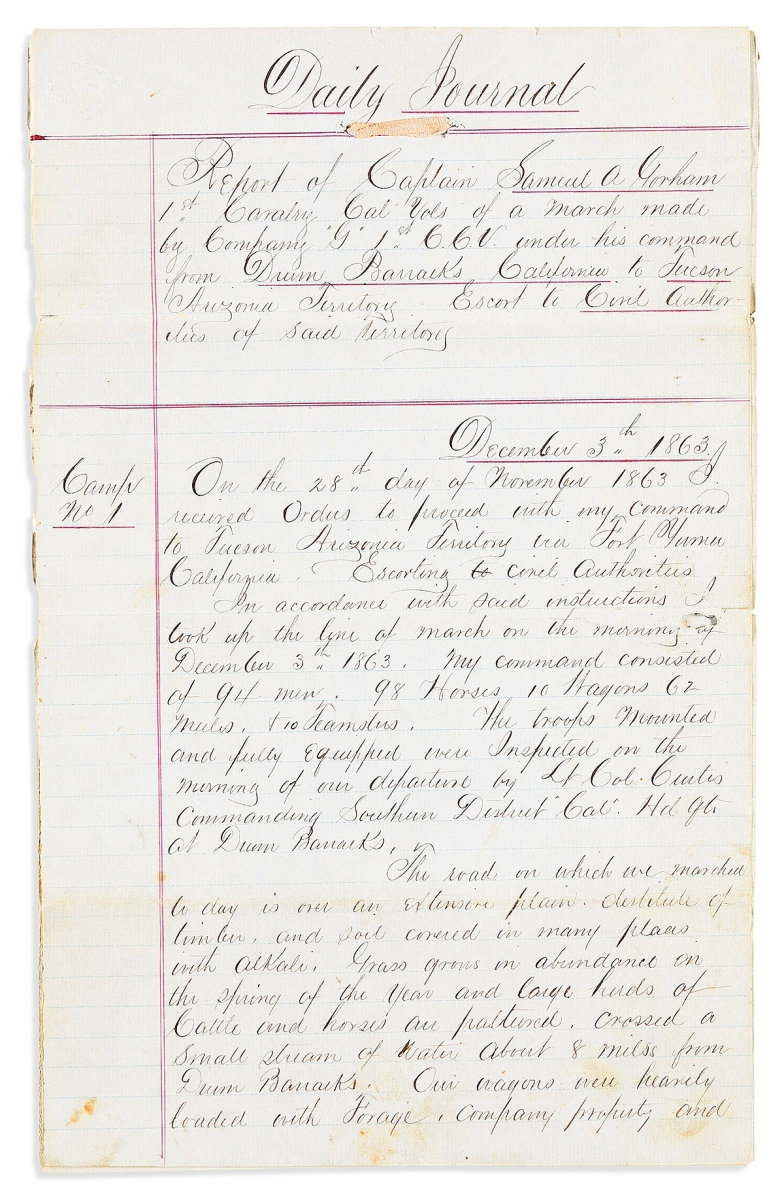 Daily Journal
Report of Captain Samuel A Gorham
1st Cavalry Cal Vols of a march made
by Company "G" 1st C.C.V. under his command
from Drum Barracks California to Tucson
Arizonia Territory. Escort to Civil Author-
ities of said Territory
December 3th 1863.
Camp
No 1
On the 28th day of November 1863 I.
received Orders to proceed with my command
to Tucson Arizonia Territory via Fort Yuma
California. Escorting to civil Authorities
In accordance with said instructions I
took up the line of march on the morning of
December 3th 1863. My command consisted
of 94 men. 98 Horses 10 Wagons 62
Mules. & 10 Teamsters. The troops Mounted
and fully Equipped were Inspected on the
morning of our departure by Lt Col. Curtis
Commanding Southern District "Cal". Hd Qts
at Drum Barracks.
The road on which we marched
to day is over an Extensive plain. destitute of
timber. and soil covered in many places
with alkali. Grass grows in abundance in
the spring of the Year and large herds of
Cattle and horses are pastured. crossed a
small stream of Water About 8 miles from
Drum Barracks. Our wagons were heavily
loaded with Forage. Company property and